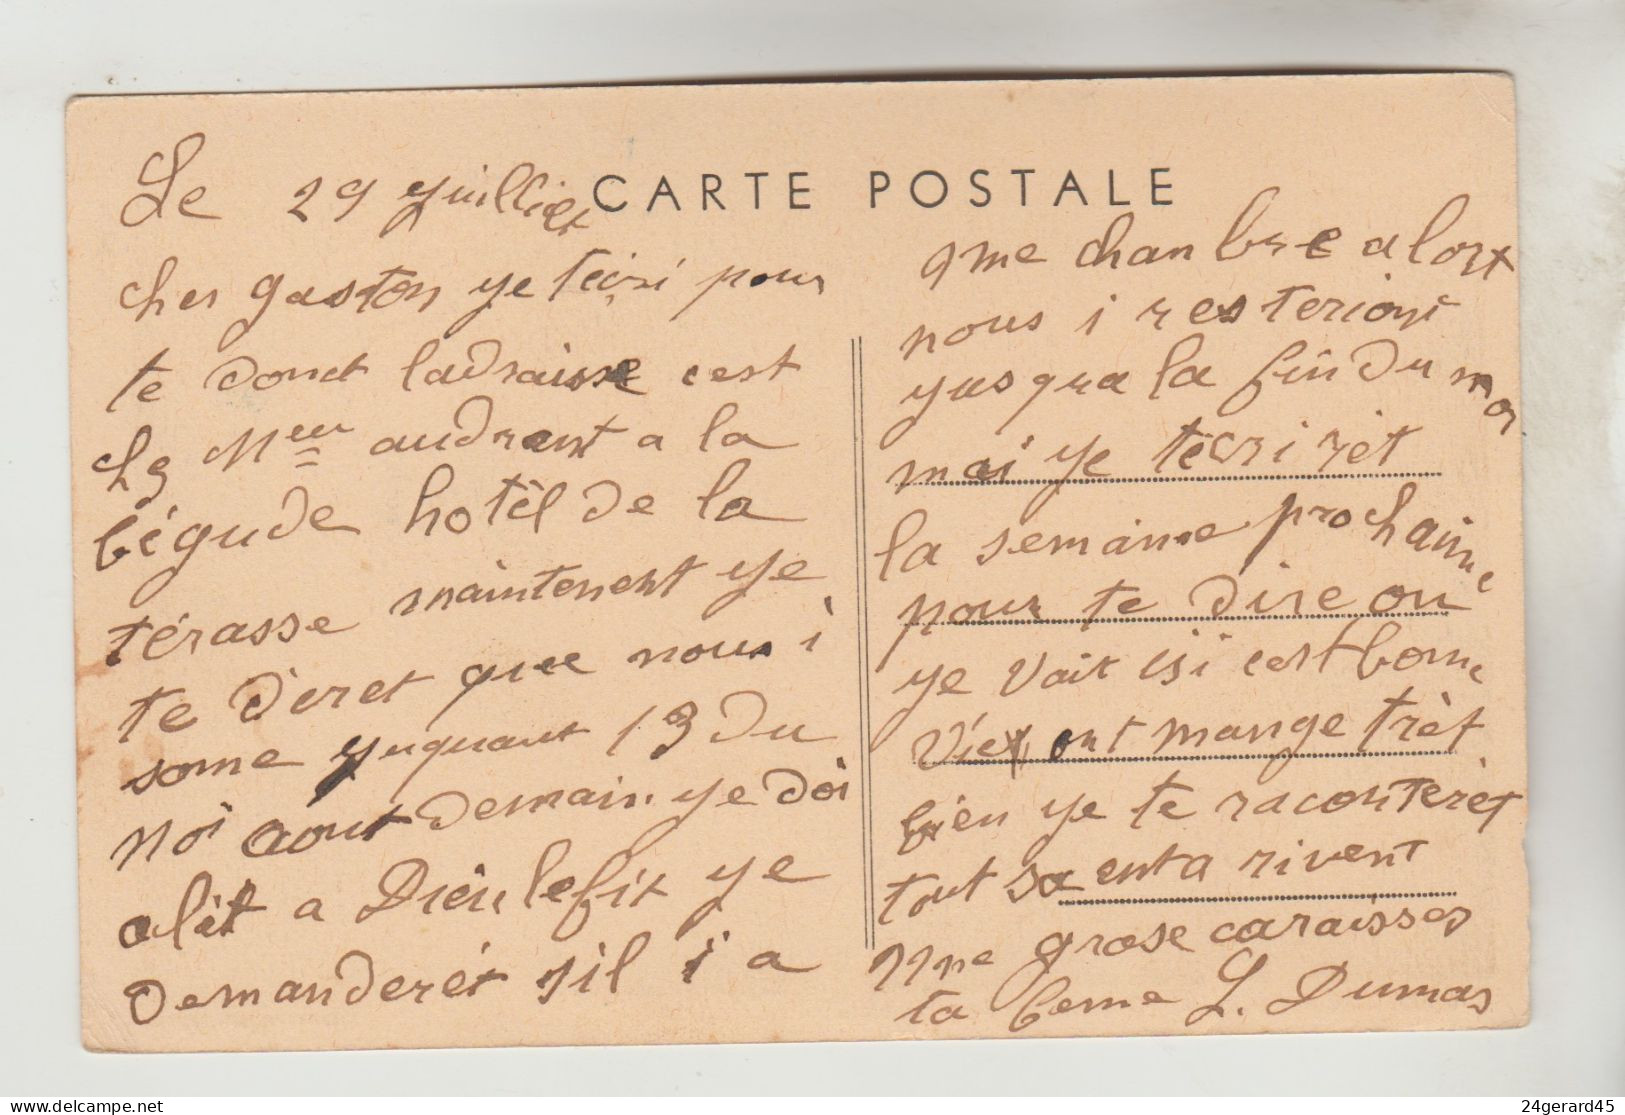 CARTE POSTALE
Le 29 yuilliet
cher gaston ye técri pour
te donct ladraisse cest
chz Meur audrant a la
bégude hotèl de la
térasse maintenent ye
te dìret que nous i
some yuquaut 13 du
moi aout demain ye doi
alèt a Dieulefit ye
demanderét sil i a
une chanbre alort
nous i resteriont
yusqua la fin du moi
mai ye técrirèt
la semaine prochaine
pour te dire ou
ye vait isi cest bone
vie ont mange trèt
bien ye te raconterèt
tout sa enta rivent
une grose caraisses
ta feme L. Dumas
24gerard45